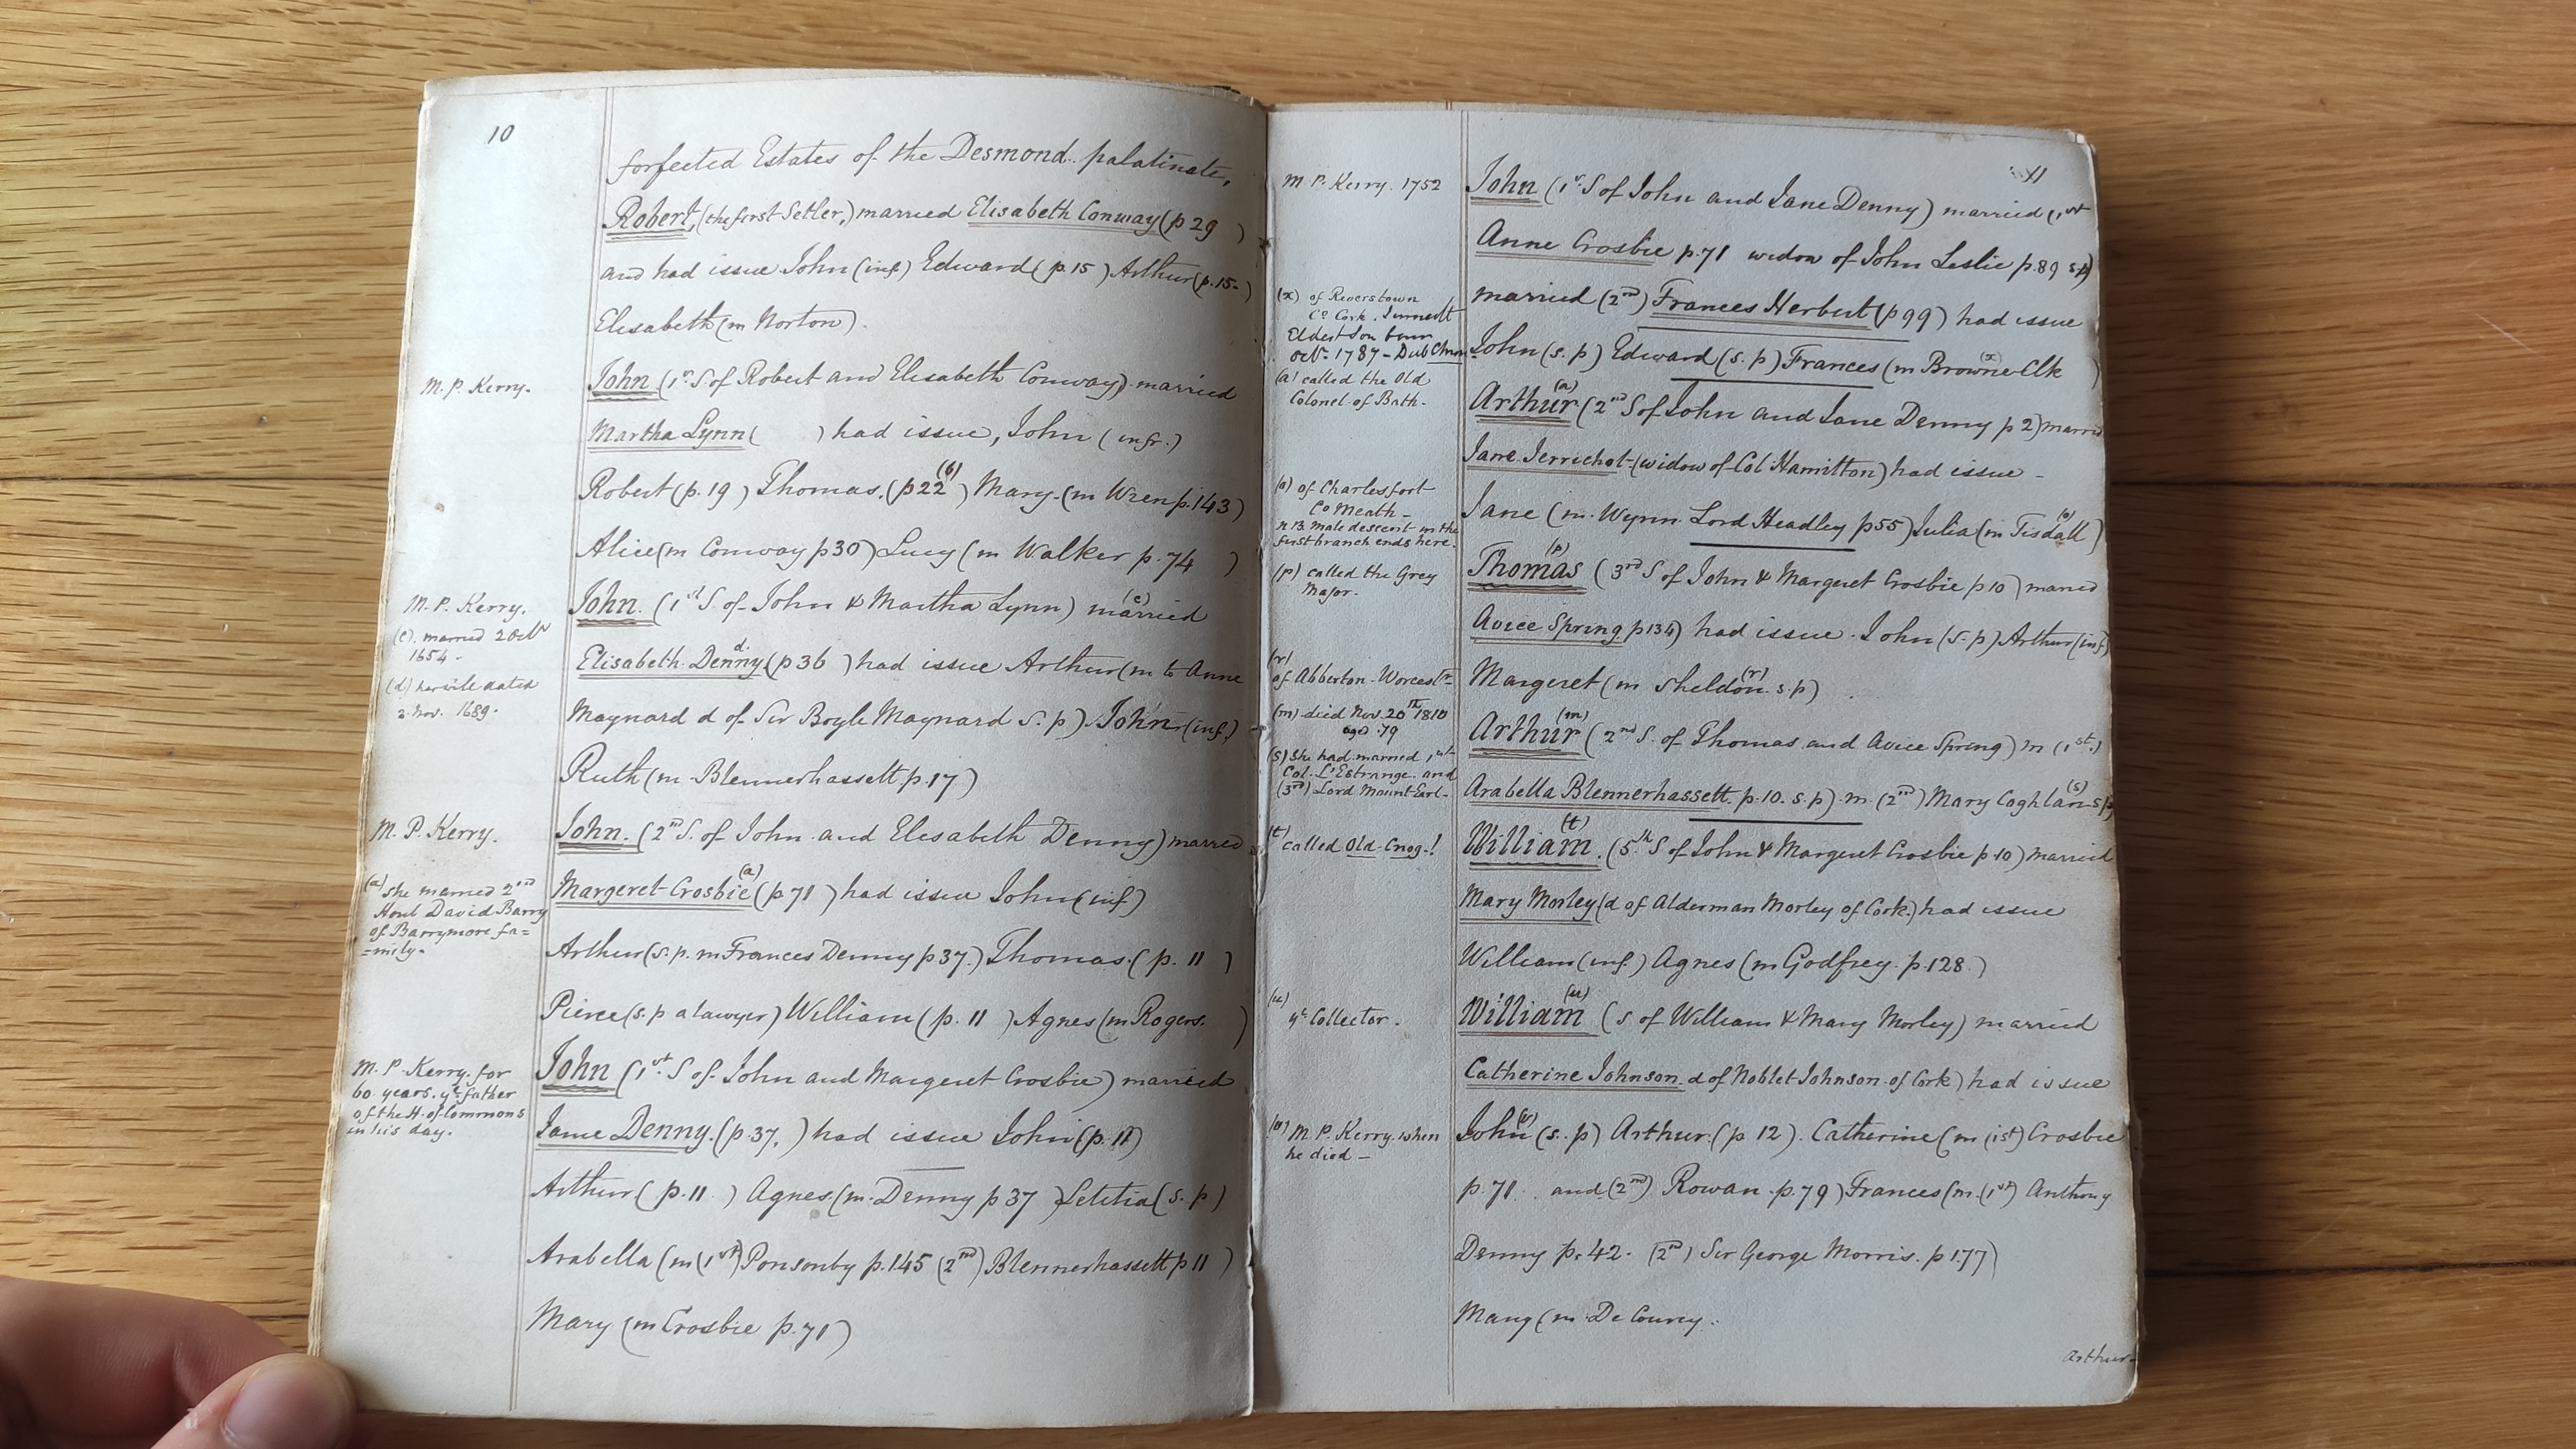 10
forfected Estates of the Desmond palatinate,
Robert, (the first Setler,) married Elisabeth Conway (p 29 )
and had issue John (inf) Edward (p. 15 ) Arthur (p. 15- )
Elisabeth (m Norton).
M. P. Kerry.
John (1st S of Robert and Elisabeth Conway) married
Martha Lynn ( ) had issue, John (infr.)
Robert (p. 19 ) Thomas. (p 22 (b) ) Mary. (m Wren p. 143)
Alice (m Conway p 30) Lucy (m Walker p. 74 )
M. P. Kerry.
(c). married 2 Octr
1654.
(d) her will dated
2. Nov. 1689.
John. (1st S. of John & Martha Lynn) married (c)
Elisabeth Denny d. (p 36 ) had issue Arthur (m to Anne
Maynard d of Sir Boyle Maynard s. p) John (inf.)
Ruth (m. Blennerhassett p. 17 )
M. P. Kerry.
John. (2nd S. of John and Elisabeth Denny) married
(a) She married 2nd
Honl David Barry
of Barrymore fa=
=mily.
Margeret Crosbie (a) (p 71 ) had issue John (inf)
Arthur (s. p. m Frances Denny p 37.) Thomas. ( p. 11 )
Pierce (s. p a lawyer) William ( p. 11 ) Agnes (m Rogers. )
M. P. Kerry. for
60 years. ye father
of the H. of Commons
in his day.
John (1st S of John and Margeret Crosbie) married
Jane Denny. (p. 37, ) had issue John (p. 11)
Arthur ( p. 11 ) Agnes. (m. Denny p 37 ) Letitia (s. p)
Arabella (m (1st) Ponsonby p. 145 (2nd) Blennerhassett p 11 )
Mary (m Crosbie p. 71 )
11
M. P. Kerry. 1752
John (1st S of John and Jane Denny) married (1st
Anne Crosbie p. 71 widow of John Leslie p. 89 s p)
married (2nd) Frances Herbert (p 99 ) had issue
(x) of Riverstown
Co Cork.
Eldest Son born
Octr 1787 - Dub Chron
John (s. p) Edward (s. p) Frances (m Browne (x) Clk )
(a) called the Old
Colonel of Bath.
Arthur (a) (2nd S of John and Jane Denny p 2) married
Jane Jerrichol (widow of Col Hamilton) had issue -
(o) of Charlesfort
Co Meath -
n B. male descent in the
first branch ends here.
Jane (m. Wynn Lord Headley p 55) Julia (m Tisdall (o) )
(p) called the Grey
Major.
Thomas (p) (3rd S of John & Margeret Crosbie p 10 ) married
Avice Spring p 134) had issue. John (s. p) Arthur (inf)
(r)
of Abberton - Worcestr
Margeret (m Sheldon (r) s. p)
(m) died Nov. 20th 1810
aged 79
Arthur (m) ( 2nd S. of Thomas and Avice Spring) m (1st.)
(s) She had married 1st
Col. L'Estrange. and
(3rd) Lord Mount-Earl -
Arabella Blennerhassett. p. 10. s. p) m. (2nd) Mary Coghlan (s) s p)
(t) called Old Cnog.!
William. (t) (5th S of John & Margeret Crosbie p. 10) married
Mary Morley (d of Alderman Morley of Cork.) had issue
William (inf.) Agnes (m Godfrey. p. 128. )
(u)
ye Collector.
William (u) (s of William & Mary Morley) married
Catherine Johnson d of Noblet Johnson of Cork) had issue
(v) M. P. Kerry. when
he died -
John (v) (s. p) Arthur. (p. 12 ). Catherine (m (1st) Crosbie
p. 71. and (2nd) Rowan. p. 79 ) Frances (m. (1st) Anthony
Denny p. 42. (2nd) Sir George Morris. p 177)
Mary (m. De Courcy.
Arthur